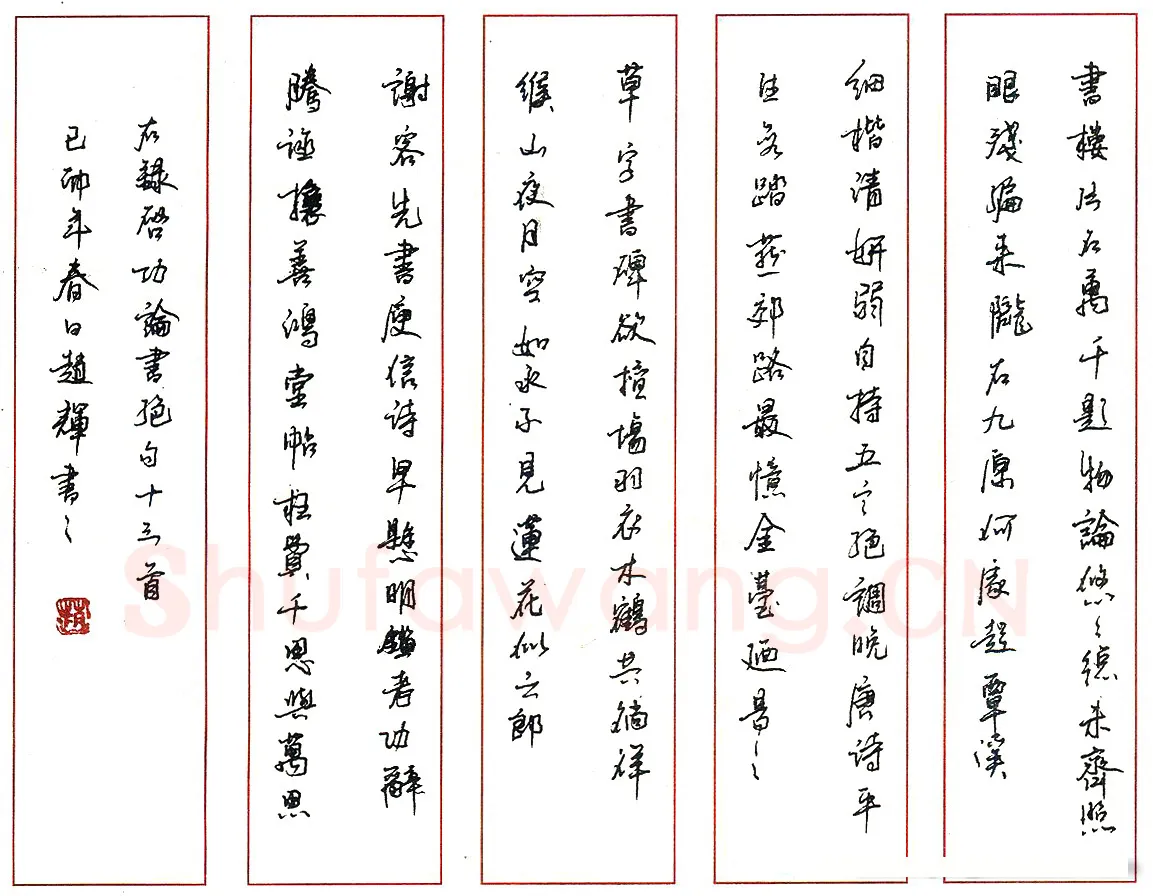 書樓片石萬千題物論悠〻總未齊照
眼殘編來隴右九原何處起覃溪
細楷清妍弱自持五言絕調晚唐詩平
生每踏燕郊路最憶金臺廼易之
草字書碑欲擅場羽衣木鶴共徜徉
緱山夜月空如水不見蓮花似六郎
謝客先書庾信詩早懸明鑒考功辭
騰誣攘善鴻堂帖枉費千思與萬思
右錄啓功論書絕句十三首
己卯年春日趙輝書之
趙
Shufawang.CN